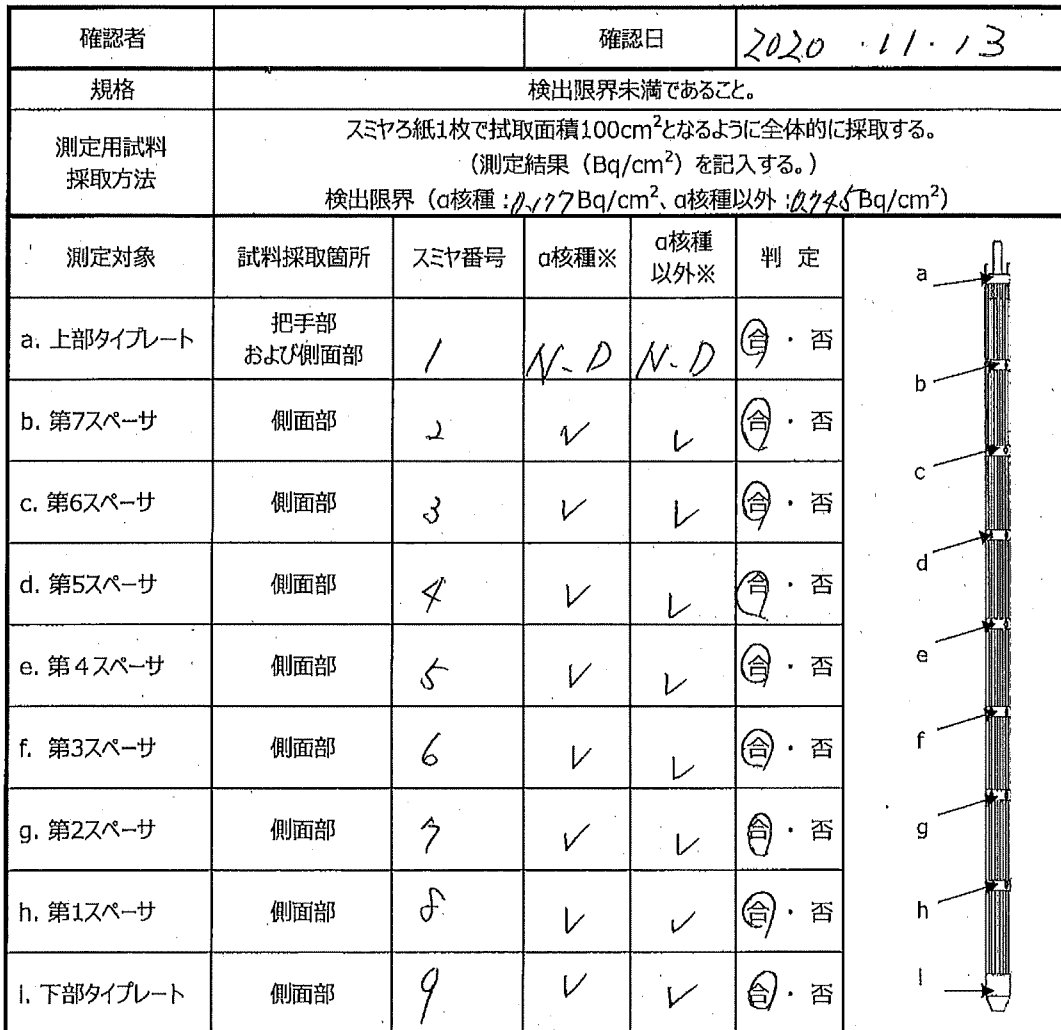 確認者 確認日 2020.11.13
規格 検出限界未満であること。
測定用試料
採取方法
スミヤろ紙1枚で拭取面積100cm²となるように全体的に採取する。
(測定結果(Bq/cm²)を記入する。)
検出限界(α核種: Bq/cm²、α核種以外: Bq/cm²)
測定対象 試料採取箇所 スミヤ番号 α核種※ α核種
以外※
判 定
a. 上部タイプレート 把手部
および側面部
1 N.D N.D 合・否
b. 第7スペーサ 側面部 2 ✓ ✓ 合・否
c. 第6スペーサ 側面部 3 ✓ ✓ 合・否
d. 第5スペーサ 側面部 4 ✓ ✓ 合・否
e. 第4スペーサ 側面部 5 ✓ ✓ 合・否
f. 第3スペーサ 側面部 6 ✓ ✓ 合・否
g. 第2スペーサ 側面部 7 ✓ ✓ 合・否
h. 第1スペーサ 側面部 8 ✓ ✓ 合・否
i. 下部タイプレート 側面部 9 ✓ ✓ 合・否
a
b
c
d
e
f
g
h
i